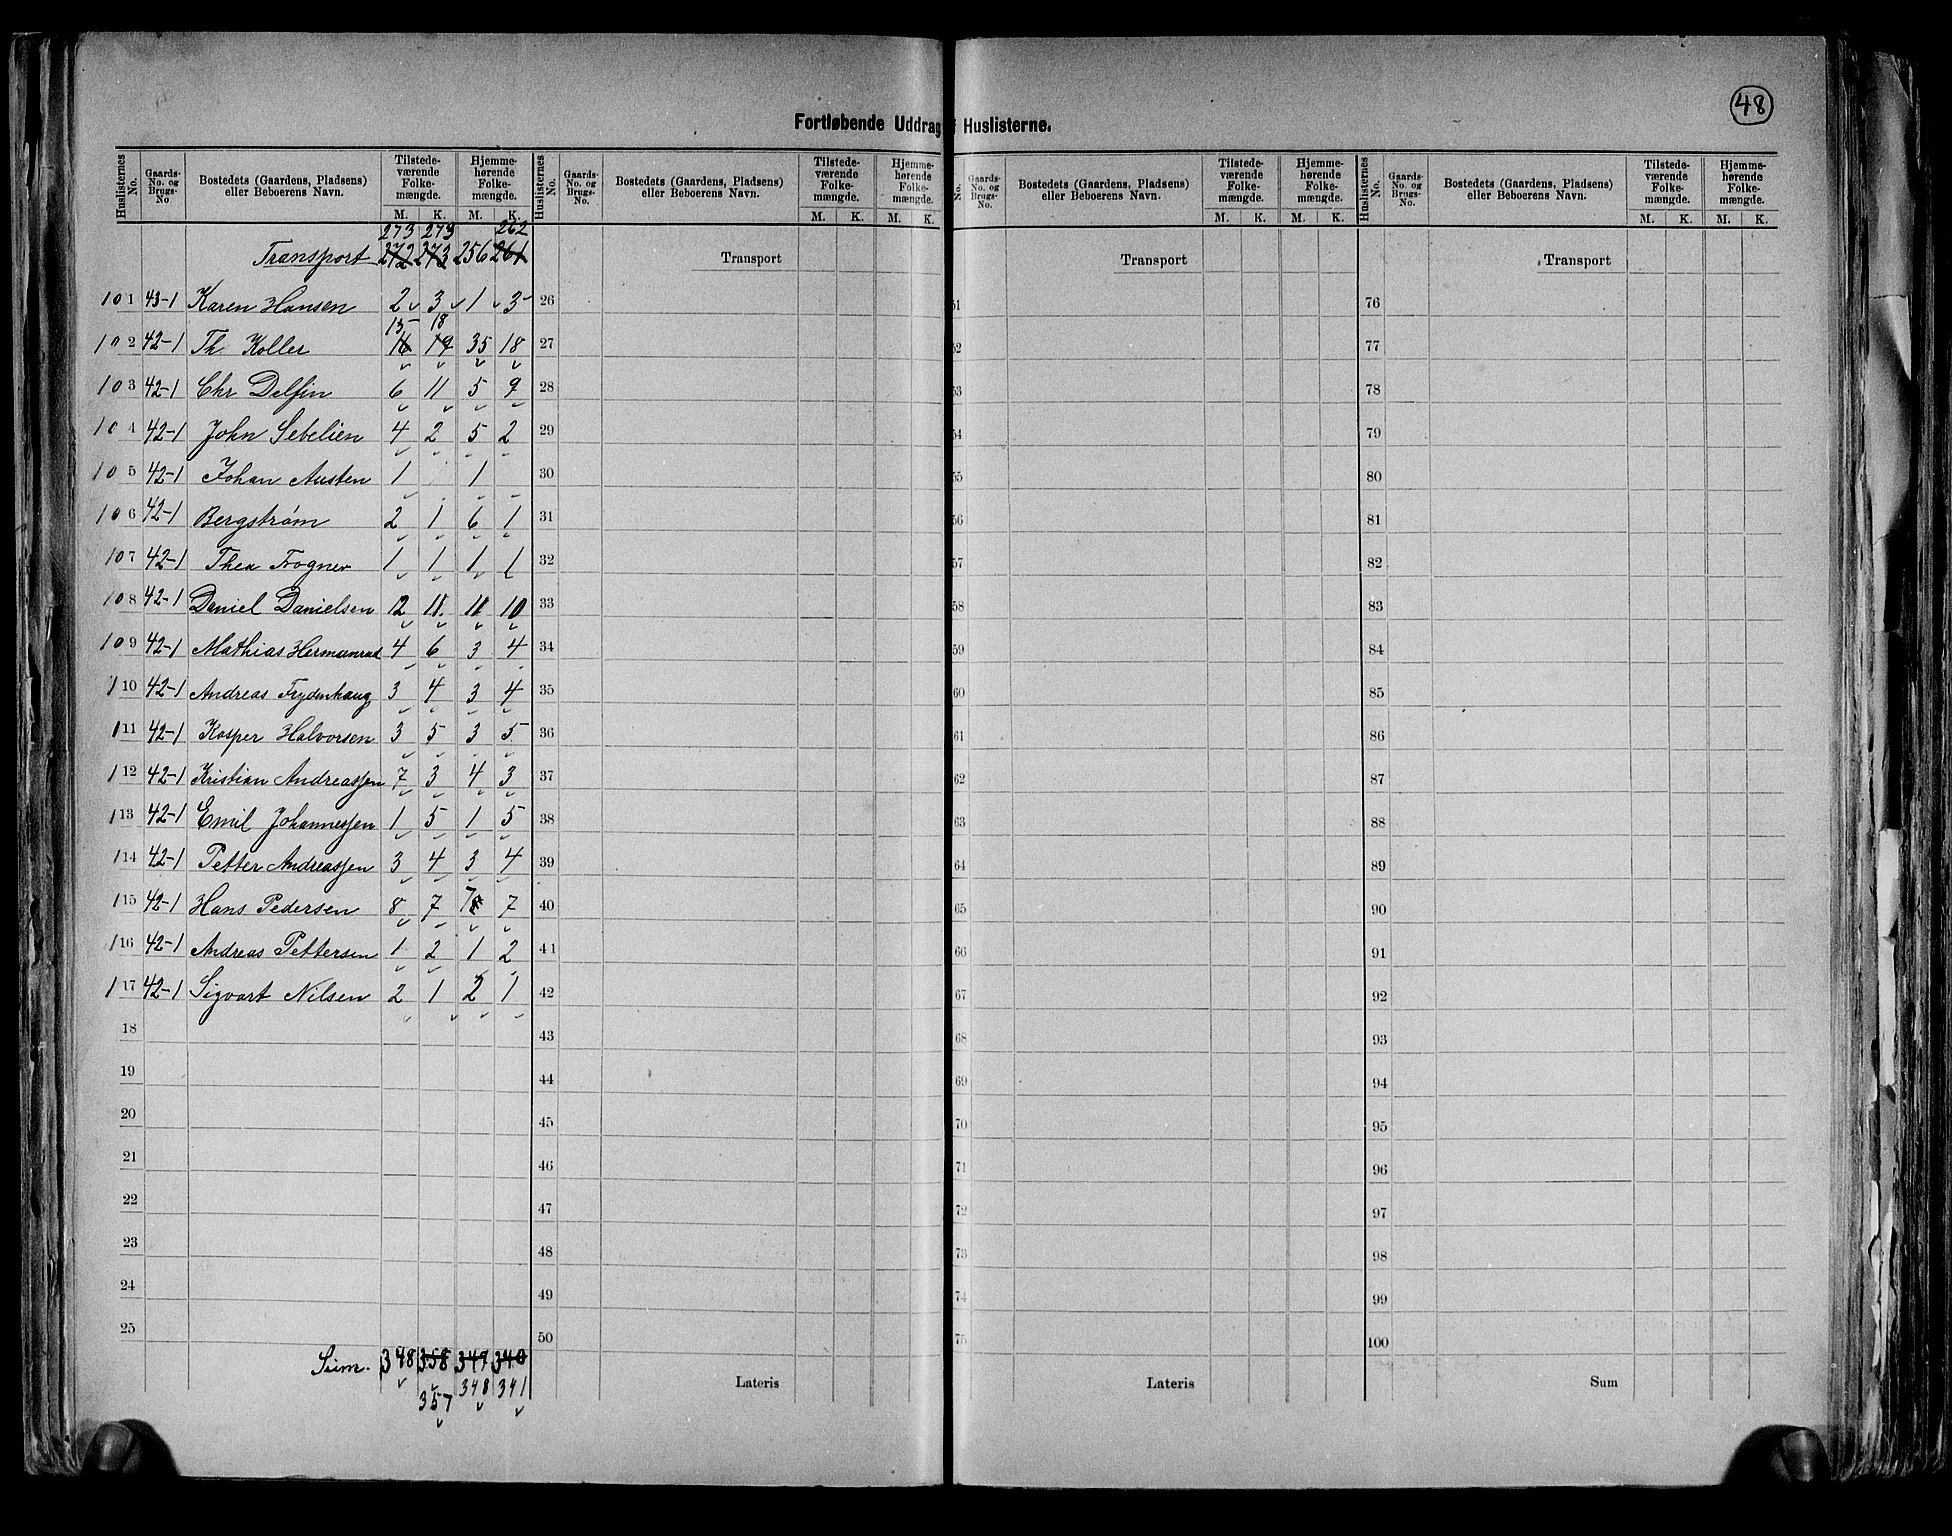 48
Fortløbende Uddrag f Huslisterne.
Huslisternes No. Gaards-No. og Brugs-No Bostedets (Gaardens, Pladsens) eller Beboerens Navn. Tilstede-værende Folke-mængde. M. K. Hjemme-hørende Folke-mængde. M. K.
Huslisternes No. Gaards-No. og Brugs-No. Bostedets (Gaardens, Pladsens) eller Beboerens Navn. Tilstede-værende Folke-mængde. M. K. Hjemme-hørende Folke-mængde. M. K.
No. Gaards-No. og Brugs-No. Bostedets (Gaardens, Pladsens) eller Beboerens Navn. Tilstede-værende Folke-mængde. M. K. Hjemme-hørende Folke-mængde. M. K.
Huslisternes No. Gaards-No. og Brugs-No. Bostedets (Gaardens, Pladsens) eller Beboerens Navn. Tilstede-værende Folke-mængde. M. K. Hjemme-hørende Folke-mængde. M. K.
273 273 262
Transport 272 273 256 261 Transport Transport Transport
101 43-1 Karen Hansen 2 3 1 3 26 51 76
15 18
102 42-1 Th Koller 16 19 35 18 27 52 77
103 42-1 Chr Delfin 6 11 5 9 28 53 78
104 42-1 John Sebelien 4 2 5 2 29 54 79
105 42-1 Johan Austen 1 1 30 55 80
106 42-1 Bergstrøm 2 1 6 1 31 56 81
107 42-1 Thea Frogner 1 1 1 1 32 57 82
108 42-1 Daniel Danielsen 12 11 11 10 33 58 83
109 42-1 Mathias Hermanrud 4 6 3 4 34 59 84
110 42-1 Andreas Frydenhaug 3 4 3 4 35 60 85
111 42-1 Kasper Halvorsen 3 5 3 5 36 61 86
112 42-1 Kristian Andreassen 7 3 4 3 37 62 87
113 42-1 Emil Johannessen 1 5 1 5 38 63 88
114 42-1 Petter Andreassen 3 4 3 4 39 64 89
115 42-1 Hans Pedersen 8 7 7 8 7 40 65 90
116 42-1 Andreas Pettersen 1 2 1 2 41 66 91
117 42-1 Sigvart Nilsen 2 1 2 1 42 67 92
18 43 68 93
19 44 69 94
20 45 70 95
21 46 71 96
22 47 72 97
23 48 73 98
24 49 74 99
25 50 75 100
Sum. 348 358 349 340
348 341 Lateris Lateris Sum
357